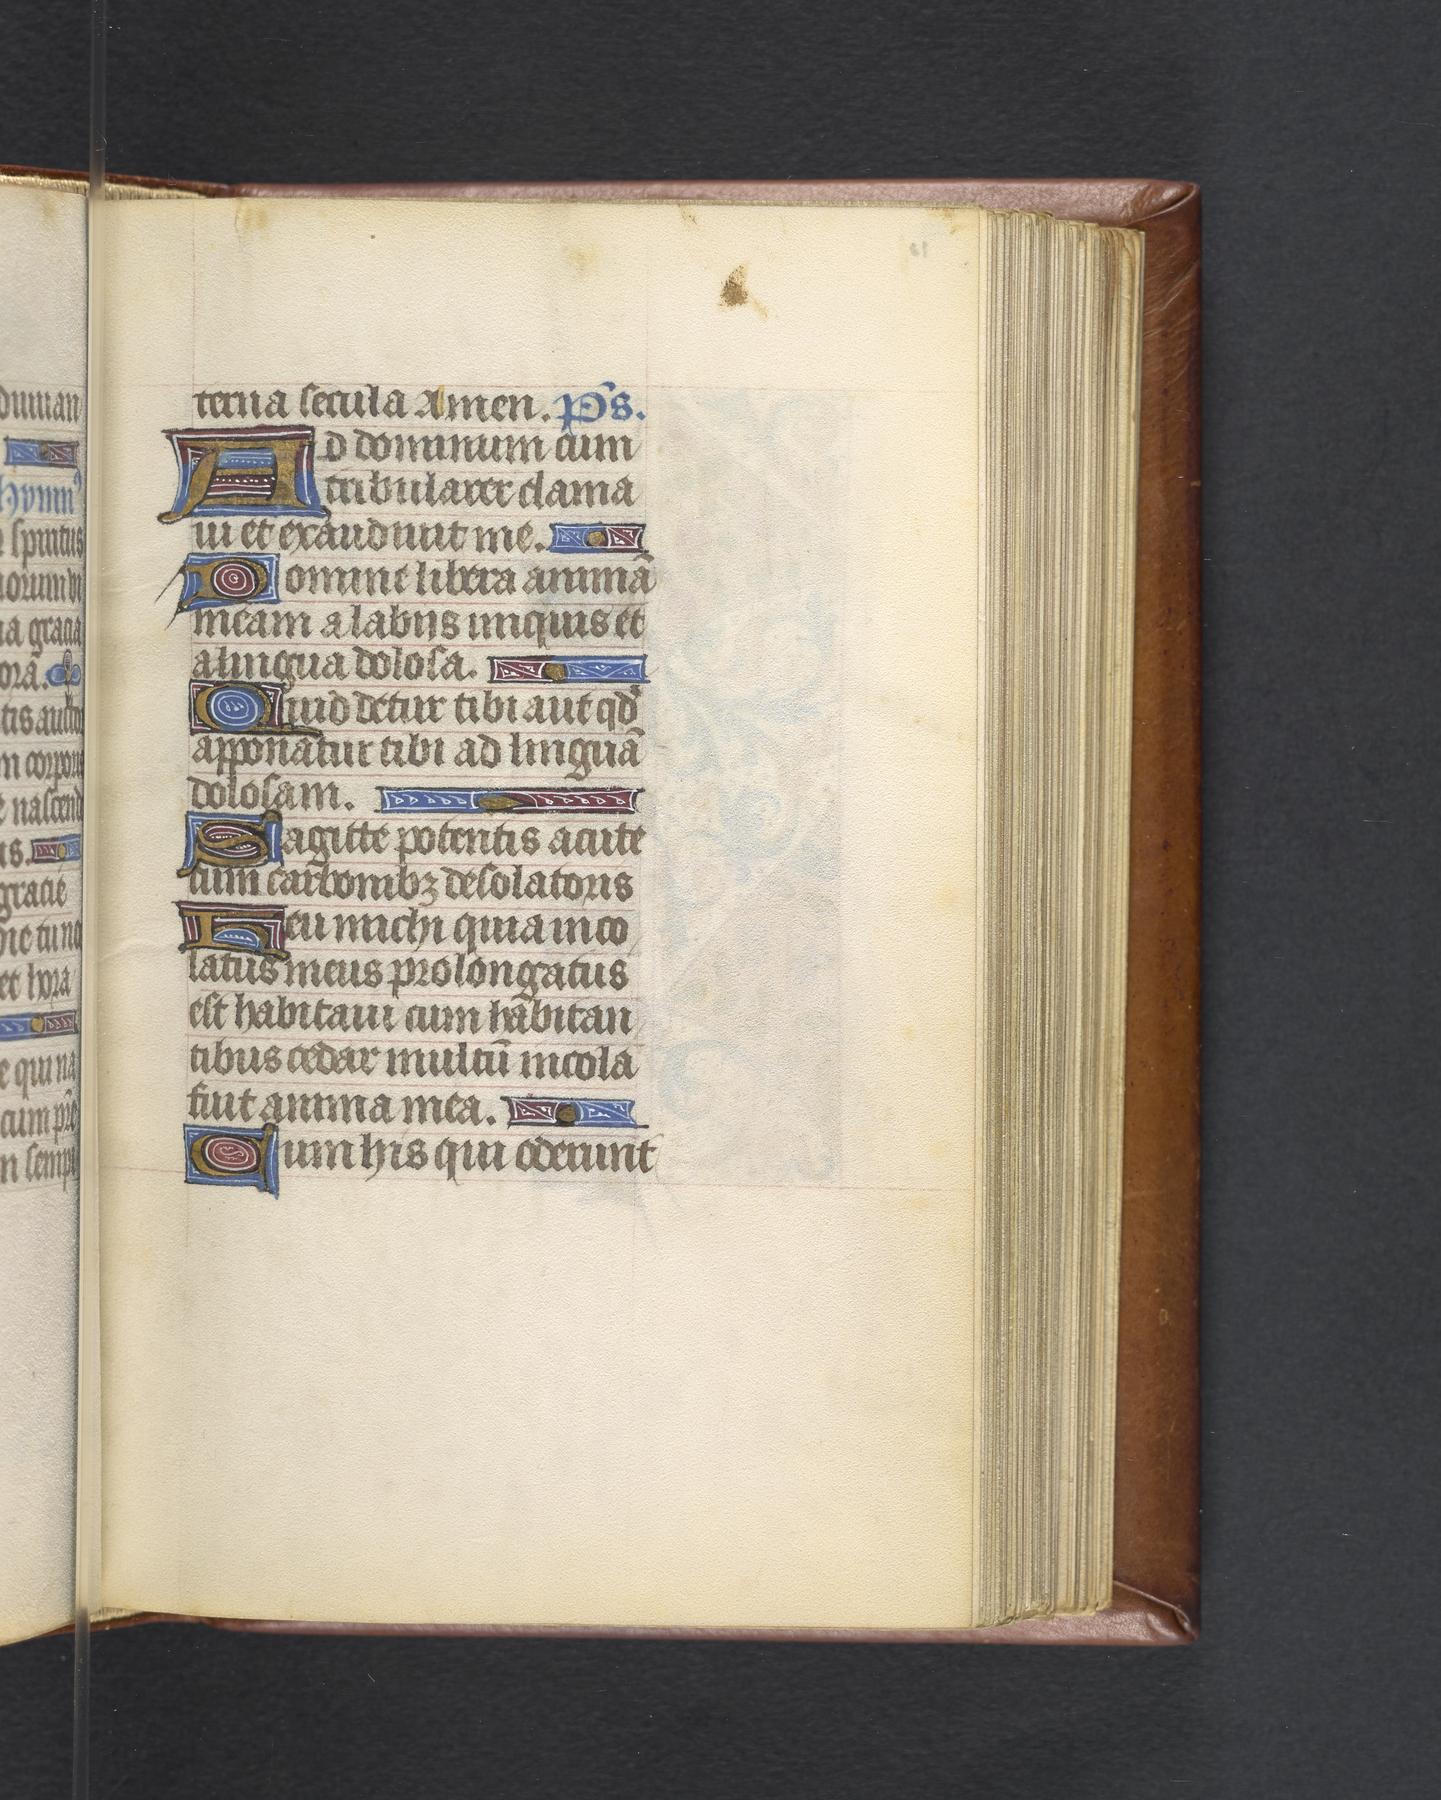 terna secula Amen. p̄s.
Ad dominum cum
tribularer clama
ui et exaudiuit me.
Domine libera animā
meam a labiis iniquis et
a lingua dolosa.
Quid detur tibi aut qd̓
apponatur tibi ad linguā
dolosam.
Sagitte potentis acute
cum carbonibꝫ desolatoris
Heu michi quia inco
latus meus prolongatus
est habitaui cum habitan
tibus cedar multū incola
fuit anima mea.
Cum his qui oderunt
hymnꝰ
spiritus
gracia
orā.
tis auctor
m corporis
nascend
us.
gracie
et hora
e qui na
cum pr̄e
n sempi